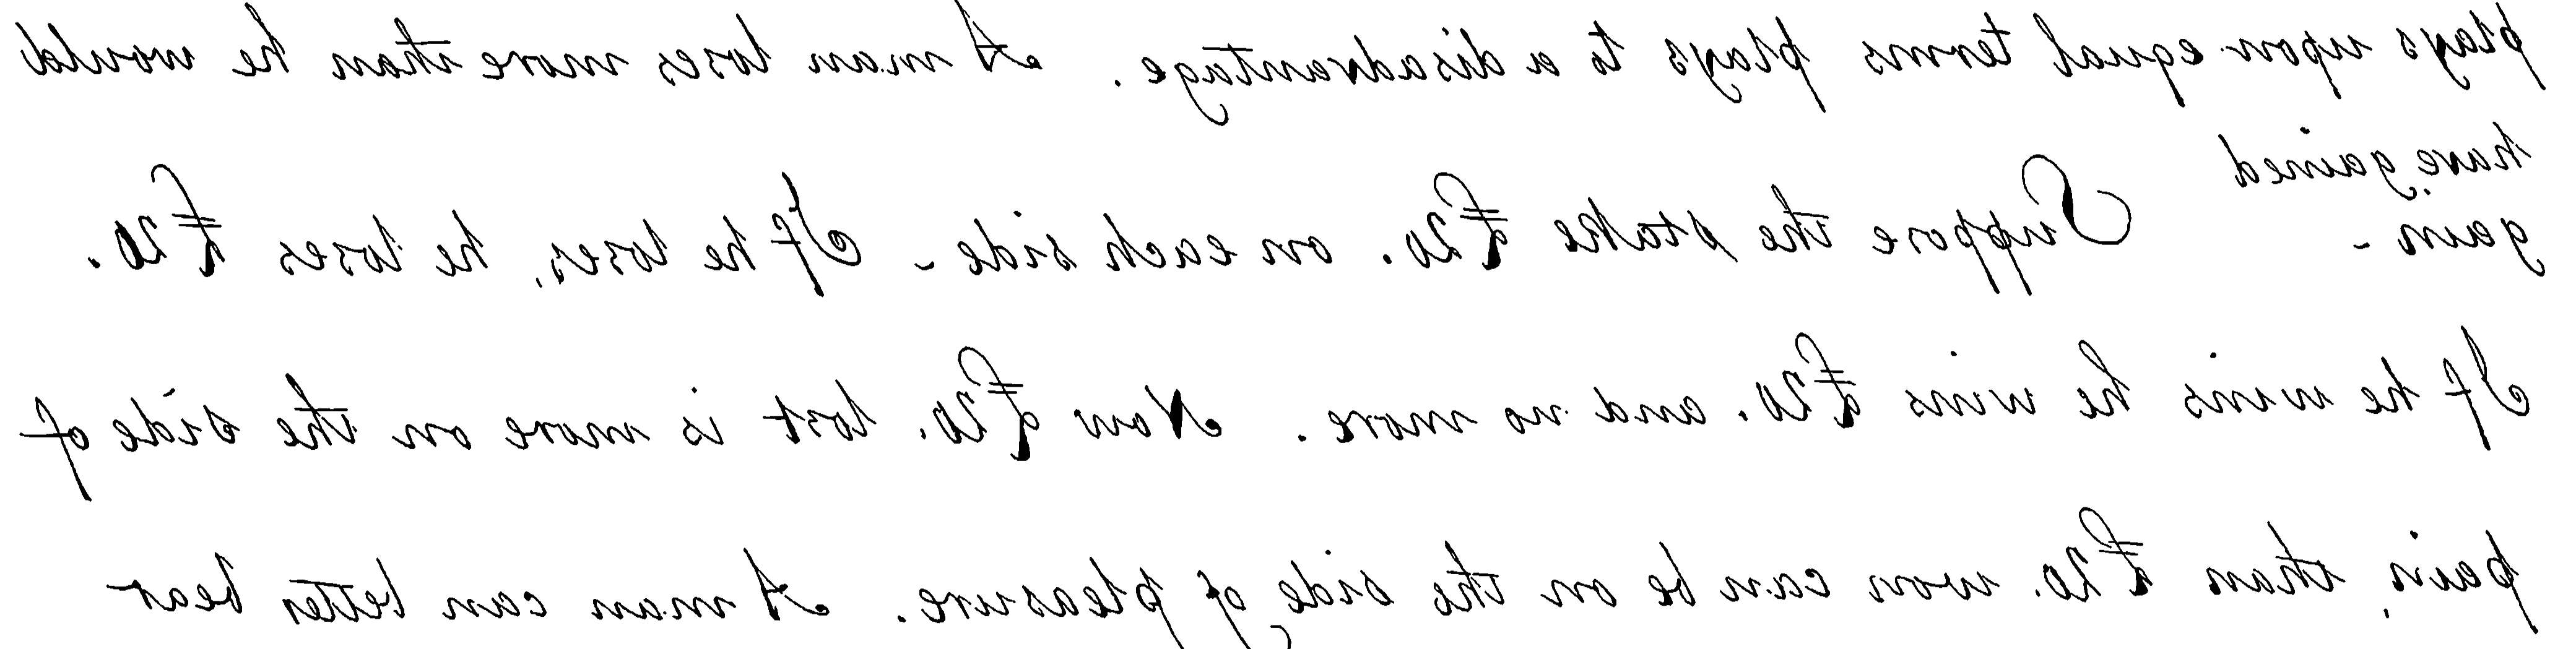 plays upon equal terms plays to a disadvantage. A man loses more than he would
have gained
gain - Suppose the stake £20. on each side - If he loses, he loses £20.
If he wins he wins £20. and no more. Now £20. lost is more on the side of
pain, than £20. won can be on the side, of pleasure. A man can better bear